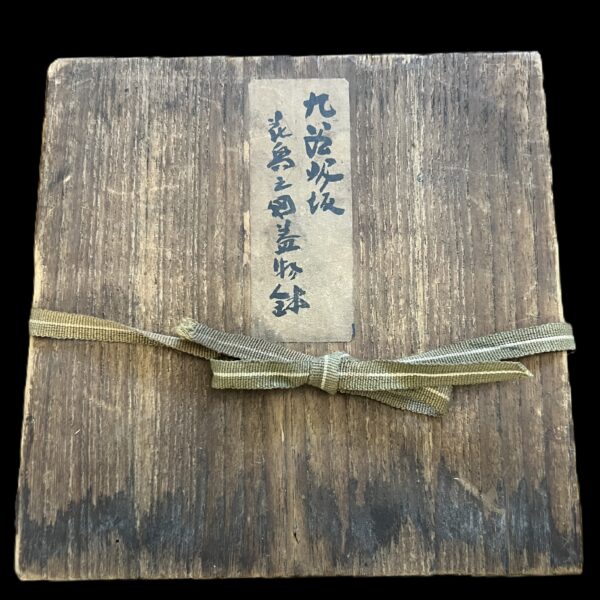 九谷吸坂
花鳥之図蓋物鉢